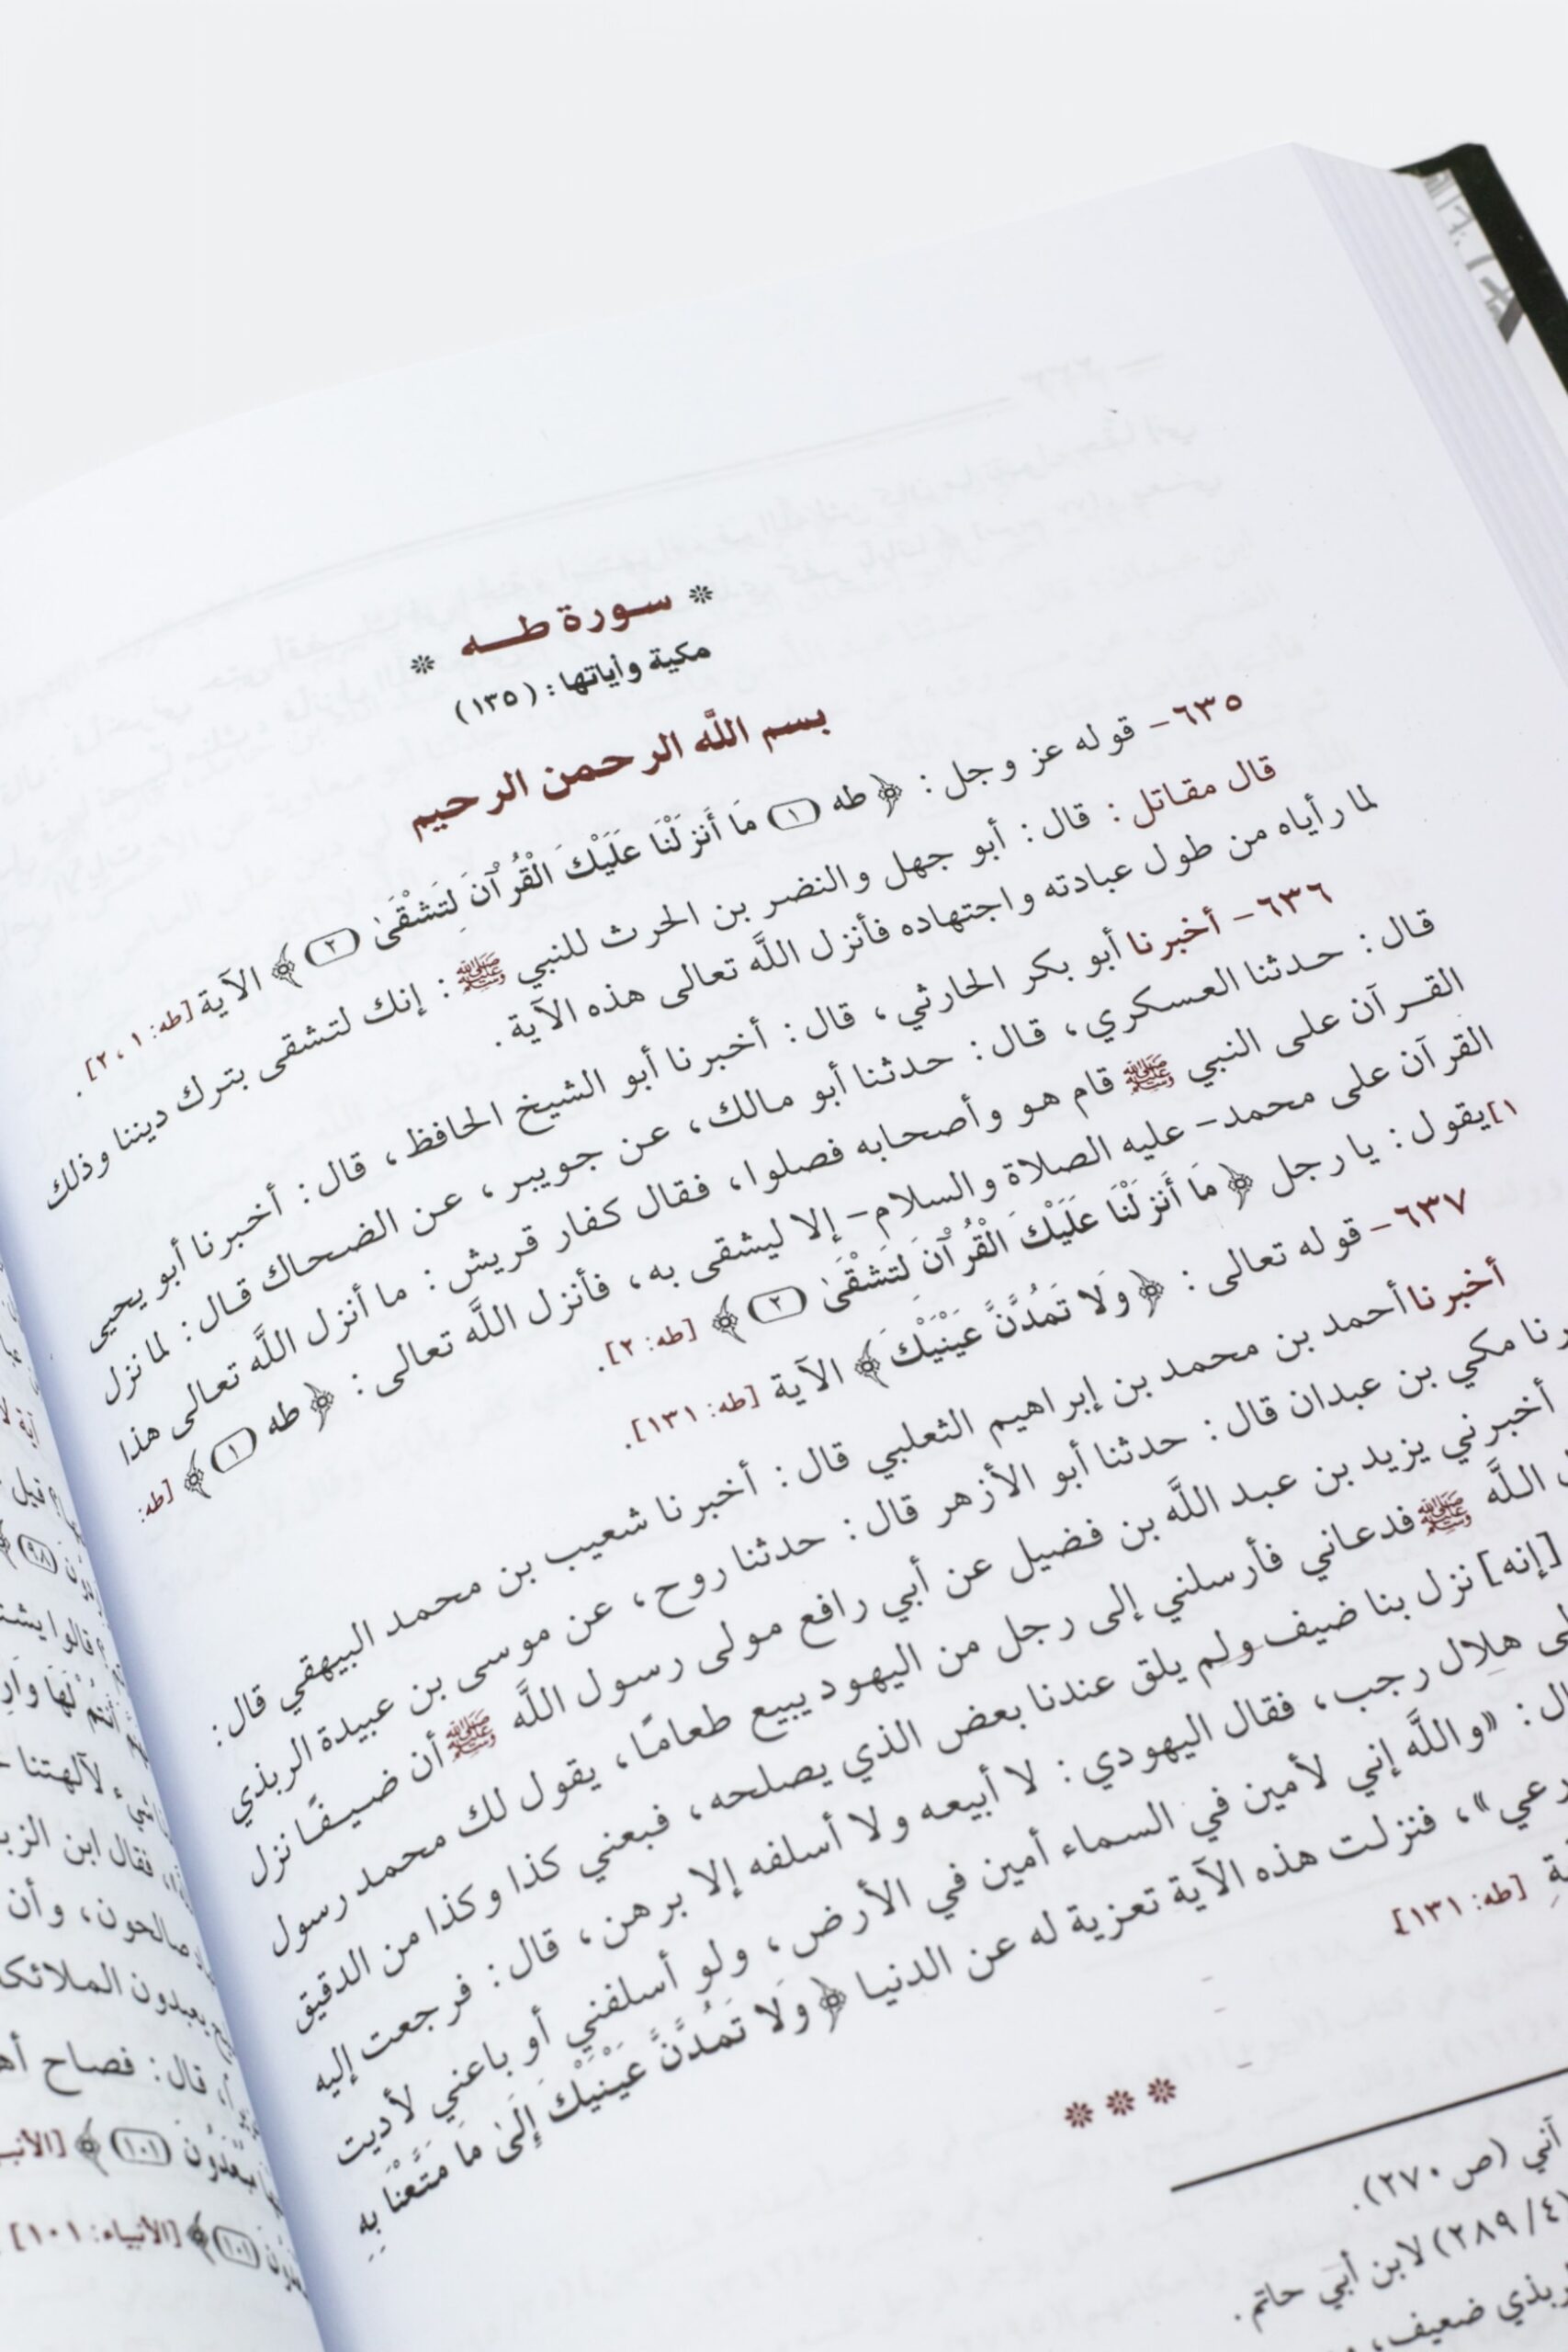 ❊ سورة طه ❊
مكية وآياتها: (١٣٥)
بسم اللَّه الرحمن الرحيم
٦٣٥- قوله عز وجل: ﴿طه (١) مَا أَنزَلْنَا عَلَيْكَ الْقُرْآنَ لِتَشْقَىٰ (٢)﴾ الآية [طه: ١، ٢].
قال مقاتل: قال: أبو جهل والنضر بن الحرث للنبي ﷺ: إنك لتشقى بترك ديننا وذلك
لما رأياه من طول عبادته واجتهاده فأنزل اللَّه تعالى هذه الآية.
٦٣٦- أخبرنا أبو بكر الحارثي، قال: أخبرنا أبو الشيخ الحافظ، قال: أخبرنا أبو يحيى
قال: حدثنا العسكري، قال: حدثنا أبو مالك، عن جويبر، عن الضحاك قال: لما نزل
القرآن على النبي ﷺ قام هو وأصحابه فصلوا، فقال كفار قريش: ما أنزل اللَّه تعالى هذا
القرآن على محمد- عليه الصلاة والسلام- إلا ليشقى به، فأنزل اللَّه تعالى: ﴿طه (١)﴾ [طه:
١] يقول: يا رجل ﴿مَا أَنزَلْنَا عَلَيْكَ الْقُرْآنَ لِتَشْقَىٰ (٢)﴾ [طه: ٢].
٦٣٧- قوله تعالى: ﴿وَلَا تَمُدَّنَّ عَيْنَيْكَ﴾ الآية [طه: ١٣١].
أخبرنا أحمد بن محمد بن إبراهيم الثعلبي قال: أخبرنا شعيب بن محمد البيهقي قال:
مكي بن عبدان قال: حدثنا أبو الأزهر قال: حدثنا روح، عن موسى بن عبيدة الربذي
أخبرني يزيد بن عبد اللَّه بن فضيل عن أبي رافع مولى رسول اللَّه ﷺ أن ضيفًا نزل
اللَّه ﷺ فدعاني فأرسلني إلى رجل من اليهود يبيع طعامًا، يقول لك محمد رسول
[إنه] نزل بنا ضيف ولم يلق عندنا بعض الذي يصلحه، فبعني كذا وكذا من الدقيق
هلال رجب، فقال اليهودي: لا أبيعه ولا أسلفه إلا برهن، قال: فرجعت إليه
«واللَّه إني لأمين في السماء أمين في الأرض، ولو أسلفني أو باعني لأديت
فنزلت هذه الآية تعزية له عن الدنيا ﴿وَلَا تَمُدَّنَّ عَيْنَيْكَ إِلَىٰ مَا مَتَّعْنَا بِهِ
[طه: ١٣١]
❊ ❊ ❊
(ص ٢٧٠).
(٤/ ٢٨٩) لابن أبي حاتم.
ضعيف،
فقال ابن
صالحون، وأن
يعبدون
قال: فصاح
(١٠١)﴾
(١٠١)﴾ [الأنبياء: ١٠١]